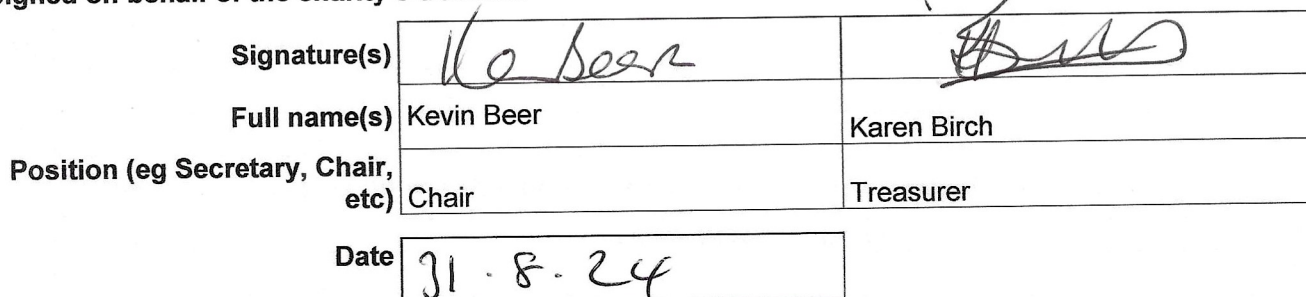 Signature(s) Ke Beer
Full name(s) Kevin Beer Karen Birch
Position (eg Secretary, Chair,
etc) Chair Treasurer
Date 31 . 8 . 24